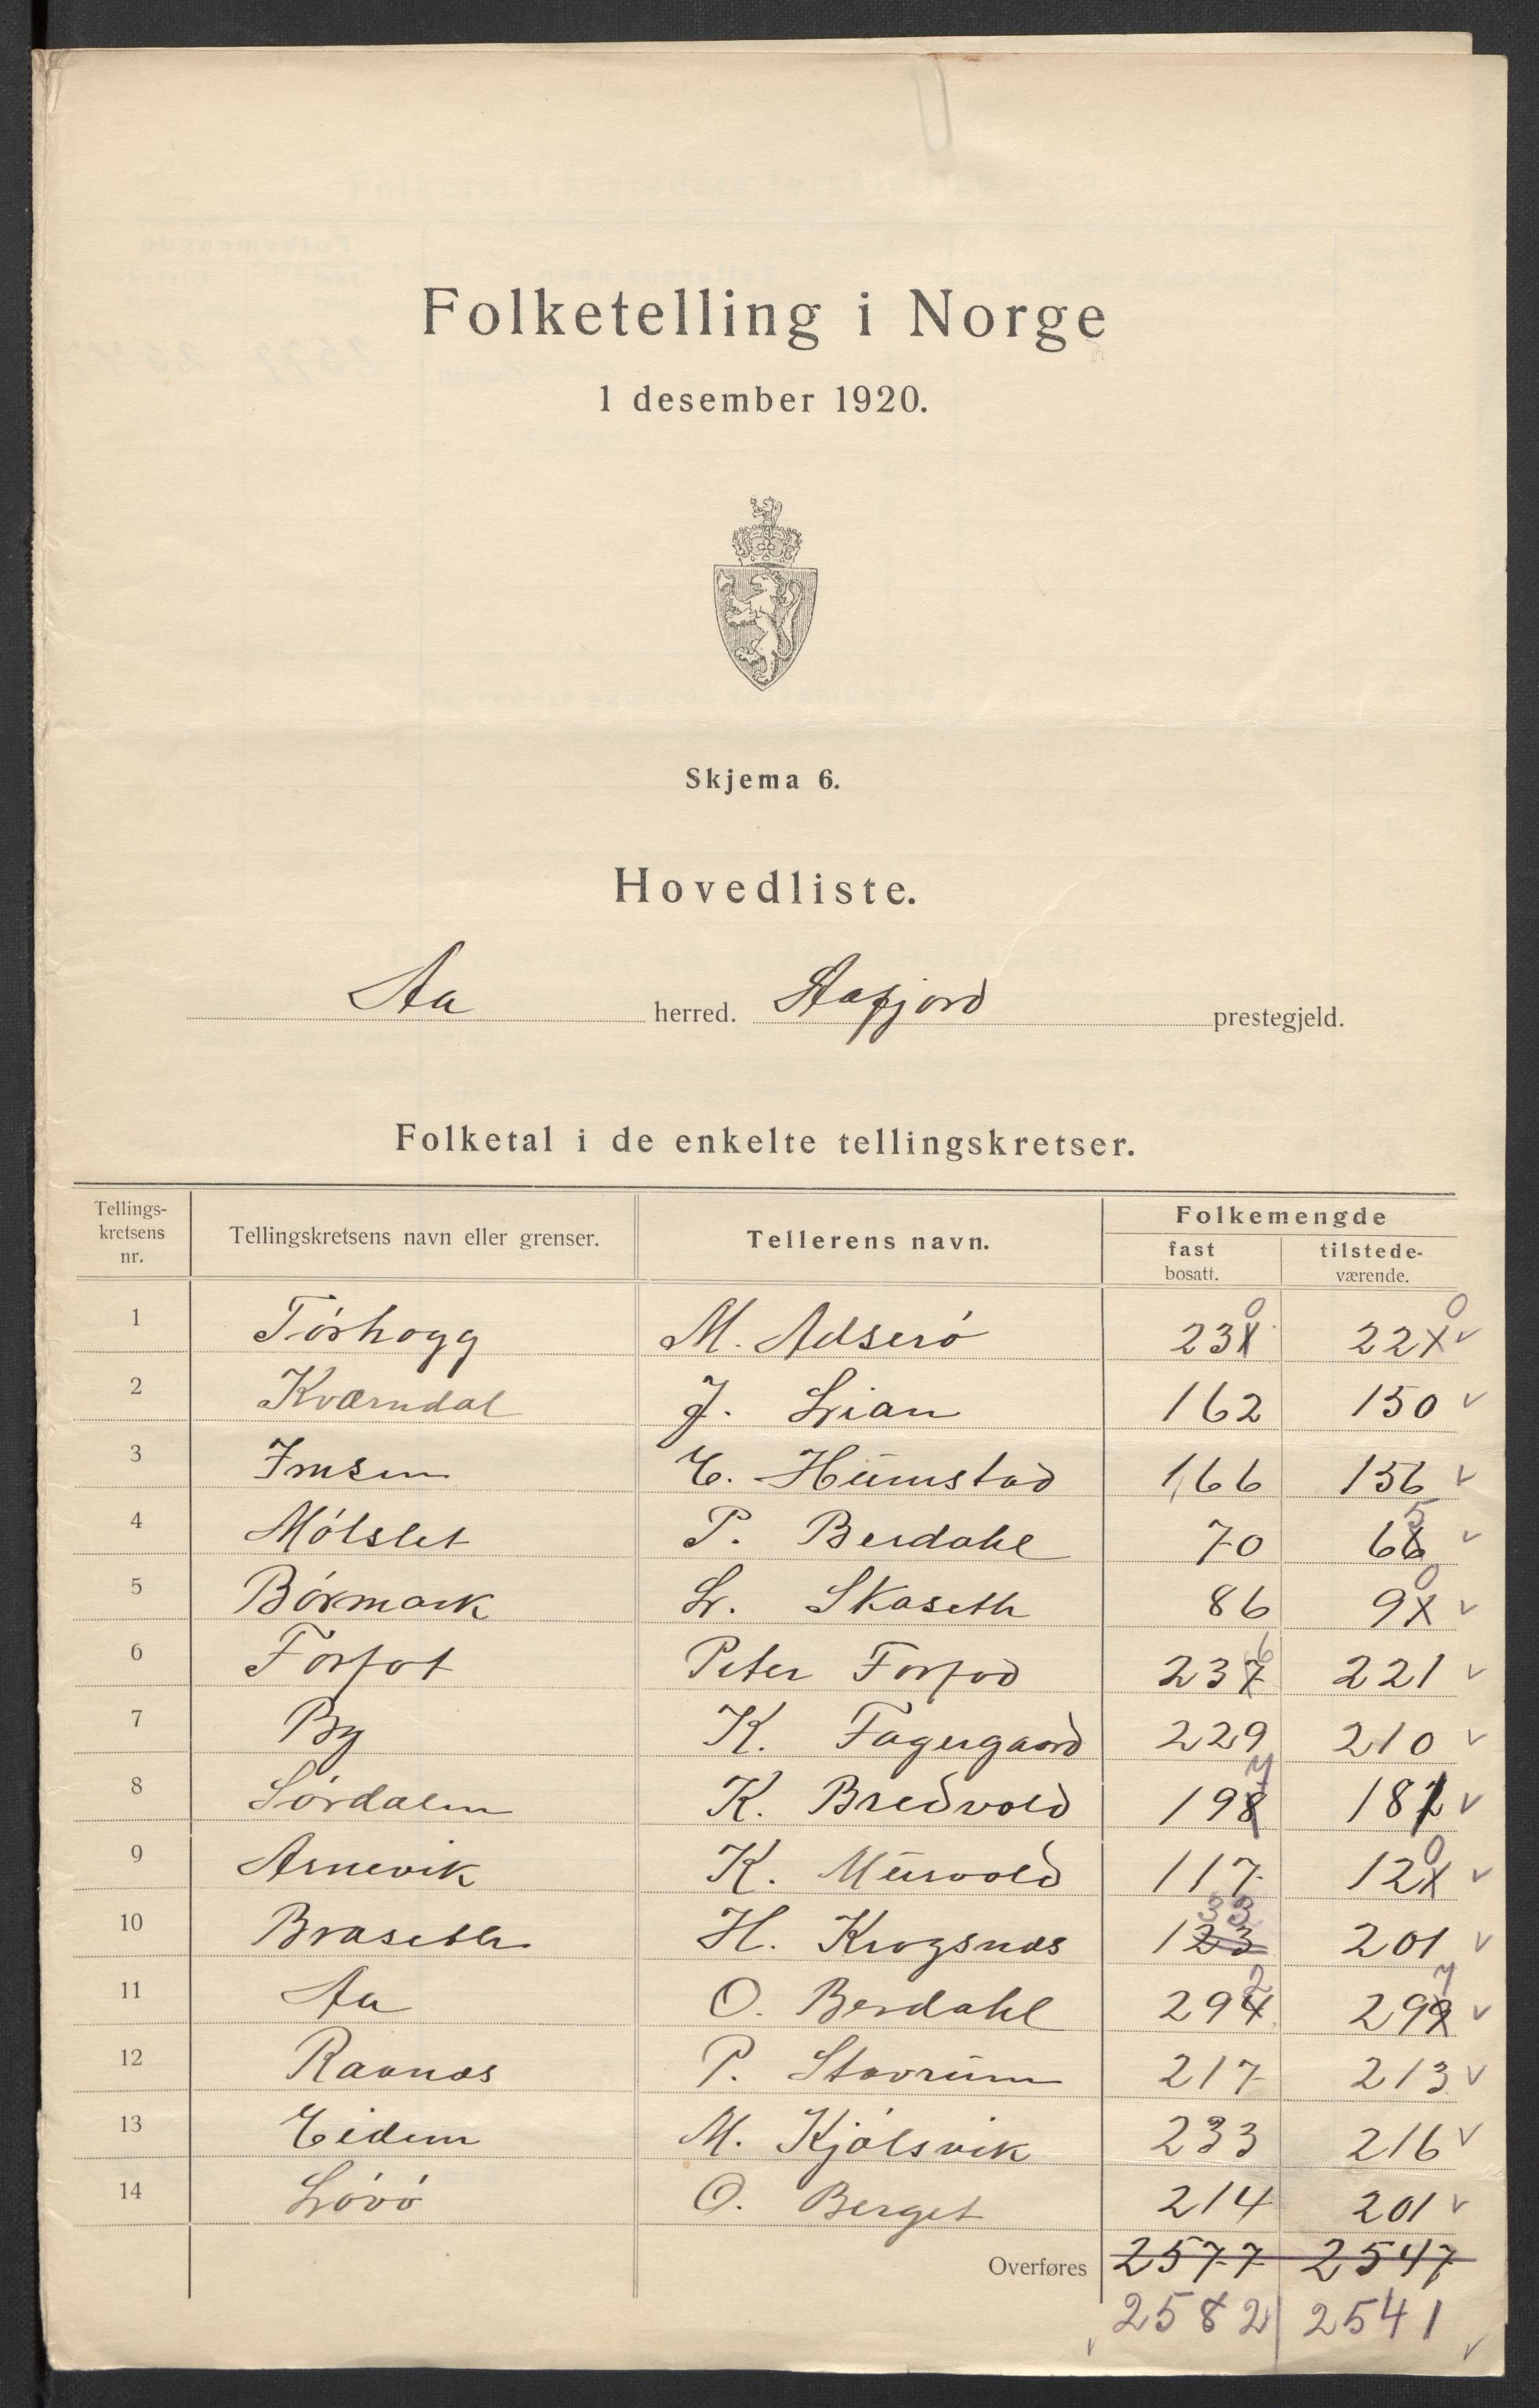 Folketelling i Norge
1 desember 1920.
Skjema 6.
Hovedliste.
Aa herred. Aafjord prestegjeld.
Folketal i de enkelte tellingskretser.
Tellings-kretsens nr. Tellingskretsens navn eller grenser. Tellerens navn. Folkemengde fast bosatt. tilstede-værende.
1 Tørhogg M. Adserø 231 0 221 0 v
2 Kværndal J. Lian 162 150 v
3 Imsen E. Humstad 166 156 v
4 Mølslet P. Berdahl 70 66 5 v
5 Børmark L. Skaseth 86 91 0 v
6 Forfot Peter Forfod 237 6 221 v
7 By K. Fagergaard 229 210 v
8 Sørdalen K. Bredvold 198 7 181 v
9 Arnevik K. Murvold 117 121 0 v
10 Braseth H. Krogsnæs 123 33 201 v
11 Aa O. Berdahl 294 2 299 7 v
12 Raanæs P. Stavrum 217 213 v
13 Eidem M. Kjølsvik 233 216 v
14 Løvø O. Berget 214 201 v
Overføres 2577 2547
2582 2541